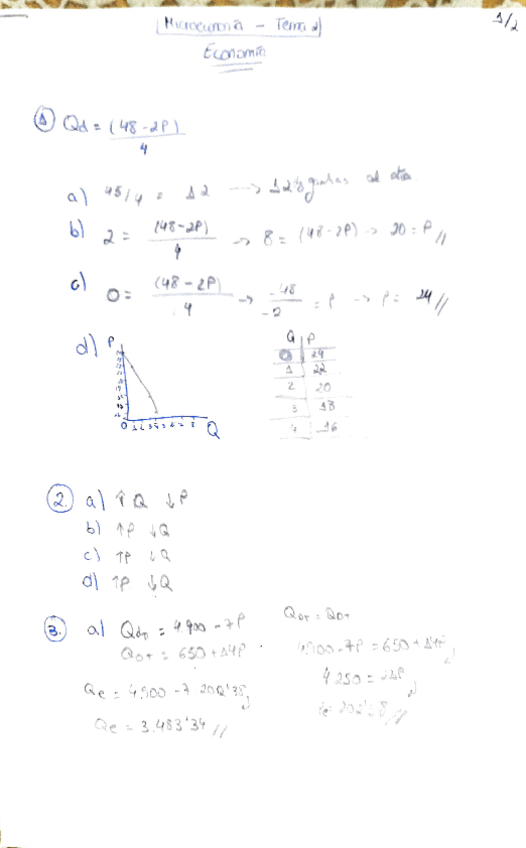 1/2
Microeconomía - Tema 2
Economía
① Qd = (48-2P) / 4
a) 48/4 = 12 → 12 al día
b) 2 = (48-2P) / 4 → 8 = (48-2P) → 20 = P //
c) 0 = (48-2P) / 4 → -48 / -2 = P → P = 24 //
d) P
Q
0 1 2 3 4 5 6 7 8
Q | P
0 | 24
1 | 22
2 | 20
3 | 18
4 | 16
② a) ↑Q ↓P
b) ↑P ↓Q
c) ↑P ↓Q
d) ↑P ↓Q
③. a) = 4.900 - 7P
= 650 + 14P
4.900-7P = 650 + 14P
4.250 = 21P
Qe = 4.900 - 7 · 202'38
Qe = 3.483'34 //